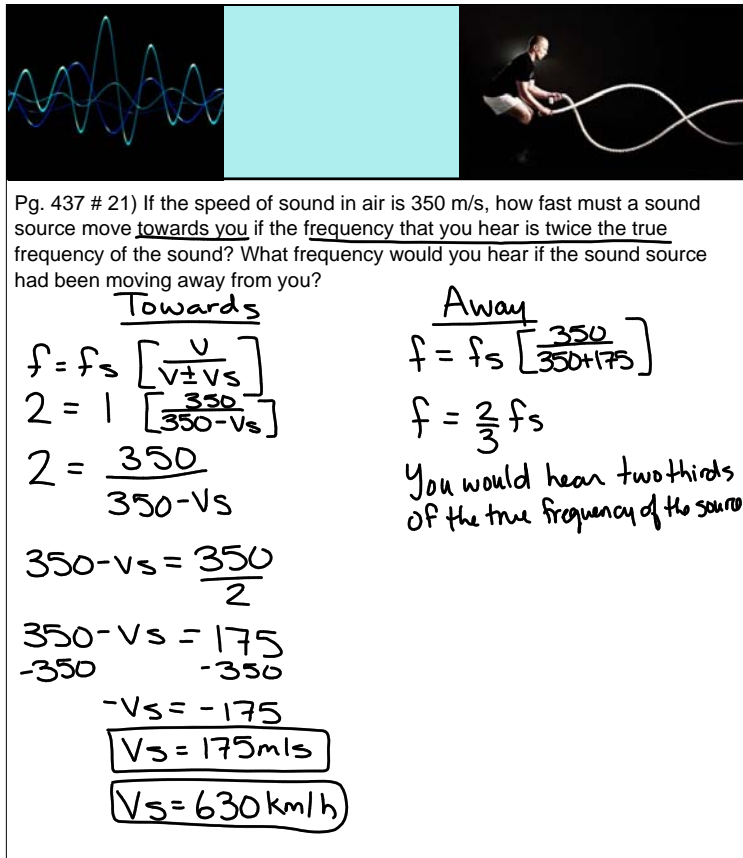 Pg. 437 # 21) If the speed of sound in air is 350 m/s, how fast must a sound
source move towards you if the frequency that you hear is twice the true
frequency of the sound? What frequency would you hear if the sound source
had been moving away from you?
Towards
f = fs [V / V ± Vs]
2 = 1 [350 / 350 - Vs]
2 = 350 / 350 - Vs
350 - Vs = 350 / 2
350 - Vs = 175
-350 -350
-Vs = -175
Vs = 175 m/s
Vs = 630 km/h
Away
f = fs [350 / 350+175]
f = 2/3 fs
You would hear two thirds
of the true frequency of the source